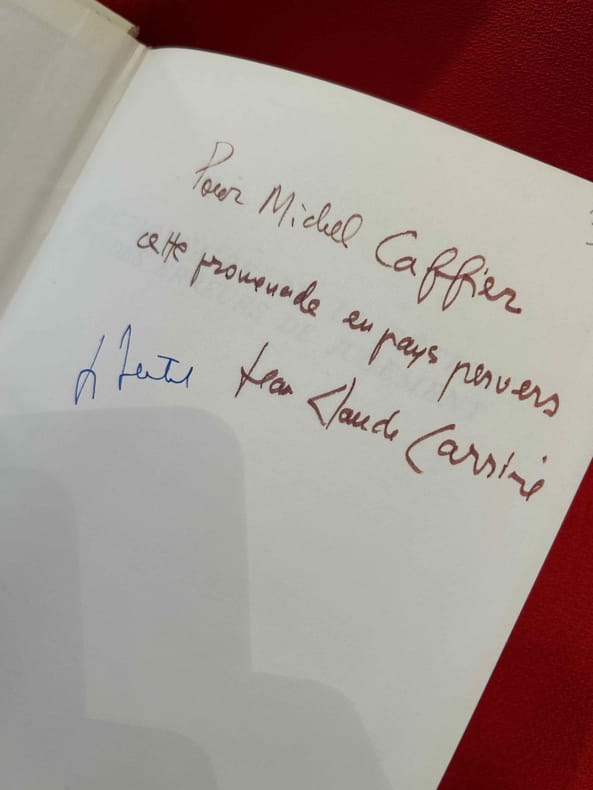 Pour Michel Caffier
cette promenade en pays pervers
Jean Claude Carrière